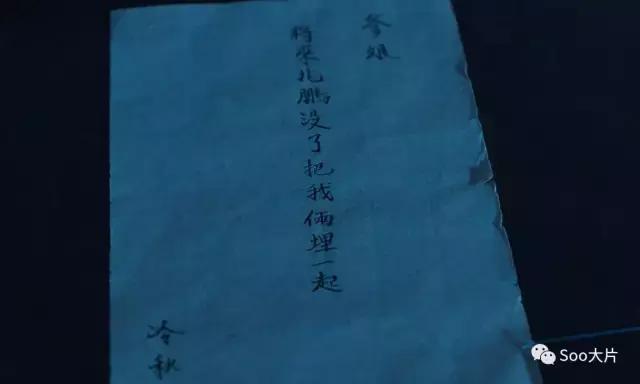 爹娘
将来兆鹏没了把我俩埋一起
冷秋
Soo大片